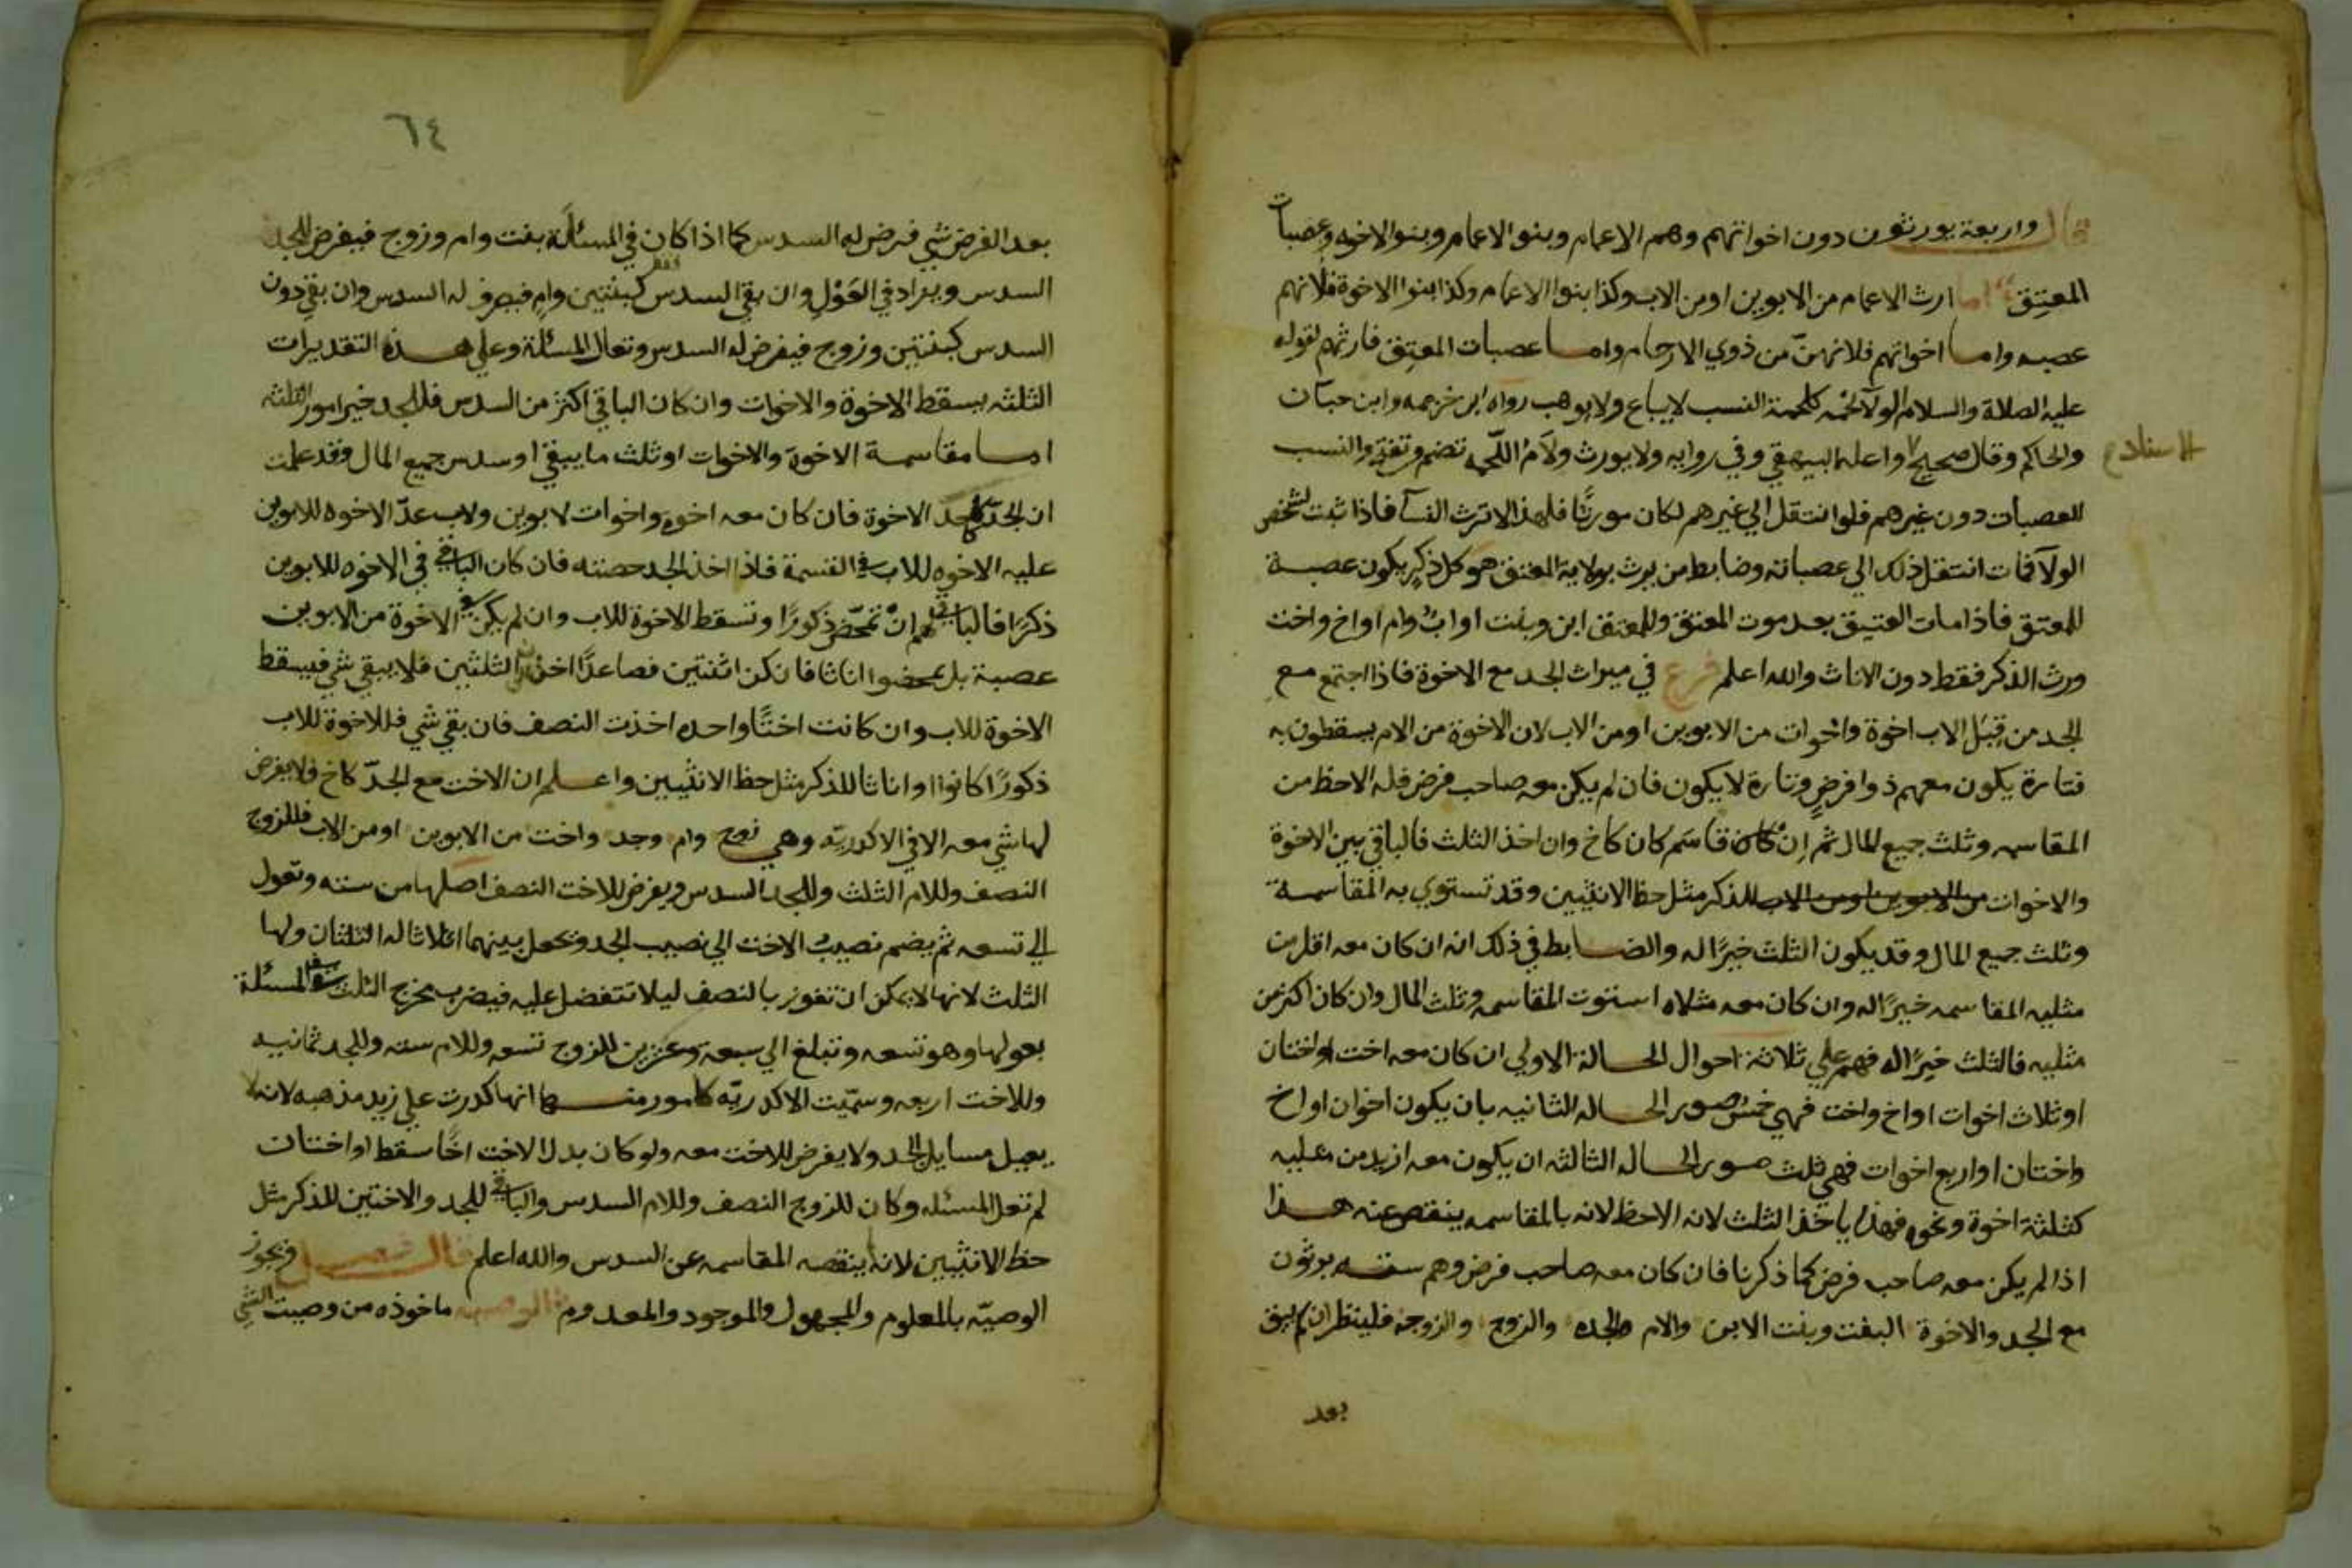 قال واربعة يورثون دون اخواتهم وهم الاعمام وبنو الاعمام وبنو الاخوه وعصبات
المعتِق اما ارث الاعمام من الابوين او من الاب وكذا بنوا الاعمام وكذا بنوا الاخوة فلانهم
عصبه واما اخواتهم فلانهنّ من ذوي الارحام واما عصبات المعتِق فارثهم لقوله
عليه الصلاة والسلام الولآ لحُمه كلحمة النسب لا يباع ولا يوهب رواه ابن خزيمه وابن حبّان
والحاكم وقال صحيح واعله البيهقي وفي روايه ولا يورث ولآم اللّحمه تضم وتفتح والنسب
الاسناد
للعصبات دون غيرهم فلو انتقل الي غيرهم لكان موروثًا فلهذا لا ترث النسآ فاذا ثبت لشخص
الولآ فمات انتقل ذلك الي عصباته وضابط من يرث بولاية المعتق هو كل ذكرٍ يكون عصبة
للمعتق فاذا مات العتيق بعد موت المعتق وللمعتق ابن وبنت او ابٌ وام او اخ واخت
ورث الذكر فقط دون الاناث والله اعلم فرع في ميراث الجد مع الاخوة فاذا اجتمع مع
الجد من قِبَل الاب اخوة واخوات من الابوين او من الاب لان الاخوة من الام يسقطون به
فتارة يكون معهم ذوا فرضٍ وتارة لا يكون فان لم يكن معه صاحب فرض فله الاحظ من
المقاسمه وثلث جميع المال ثم اِن قاسَم كان كاخ وان اخذ الثلث فالباقي بين الاخوة
والاخوات من الابوين او من الاب للذكر مثل حظ الانثيين وقد تستوي به المقاسمة
وثلث جميع المال وقد يكون الثلث خيرًا له والضابط في ذلك انه ان كان معه اقل من
مثليه المقاسمه خيرًا له وان كان معه مثلاه استوت المقاسمه وثلث المال وان كان اكثر من
مثليه فالثلث خيرًا له فهم علي ثلاثة احوال الحالة الاولي ان كان معه اخت او اختان
او ثلاث اخوات او اخ او اخ واخت فهي خمس صور الحاله الثانيه بان يكون اخوان او اخ
واختان او اربع اخوات فهي ثلث صور الحاله الثالثه ان يكون معه ازيد من مثليه
كثلثة اخوة ونحوه فهذا ياخذ الثلث لانه الاحظ لانه بالمقاسمه ينقص عنه هذا
اذا لم يكن معه صاحب فرض كما ذكرنا فان كان معه صاحب فرض وهم سته يورثون
مع الجد والاخوة البنت وبنت الابن والام والجده والزوج والزوجه فلينظر ان لم يبق
بعد
٦٤
بعد الفرض شي فرض له السدس كما اذا كان في المسئلة بنت وام وزوج فيفرض للجد
السدس ويزاد في العَوْلِ وان بقي السدس فقط كبنتين وامٍ فيصرف له السدس وان بقي دون
السدس كبنتين وزوج فيفرض له السدس وتعال المسئلة وعلي هذه التقديرات
الثلثه يسقط الاخوة والاخوات وان كان الباقي اكثر من السدس فللجد خير امور الثلثه
اما مقاسمة الاخوة والاخوات او ثلث ما يبقي او سدس جميع المال وقد علمت
ان الجدّ الاخوة فان كان معه اخوه واخوات لابوين ولاب عدّ الاخوه للابوين
عليه الاخوه للاب في القسمة فاذا اخذ الجد حصته فان كان الباقي في الاخوه للابوين
ذكرًا فالباقي لهم انْ تمحّض ذكورًا وتسقط الاخوة للاب وان لم يكن في الاخوة من الابوين
عصبة بل تمحضوا اناثا فان كن اثنتين فصاعدًا اخذن الثلثين فلا يبقي شي فيسقط
الاخوة للاب وان كانت اختًا واحده اخذت النصف فان بقي شي فللاخوة للاب
ذكورًا كانوا او اناثا للذكر مثل حظ الانثيين واعلم ان الاخت مع الجدّ كاخ فلا يفرض
لها شي معه الا في الاكدريّه وهي زوج وام وجد واخت من الابوين او من الاب فللزوج
النصف وللام الثلث وللجد السدس ويفرض للاخت النصف اصلها من سته وتعول
الي تسعه ثم يضم نصيبُ الاخت الي نصيب الجد وتجعل بينهما اثلاثا له الثلثان ولها
الثلث لانها لا يمكن ان تفوز بالنصف ليلا تتفضل عليه فيضرب مخرج الثلث في المسئلة
بعولها وهو تسعه وتبلغ الي سبعة وعشرين للزوج تسعه وللام سته وللجد ثمانيه
وللاخت اربعه وسمّيت الاكدريّه لامور منها انها كدرت علي زيد مذهبه لانه لا
يعيل مسايل الجد ولا يفرض للاخت معه ولو كان بدل الاخت اخًا سقط او اختان
لم تعل المسئله وكان للزوج النصف وللام السدس والباقي للجد والاختين للذكر مثل
حظ الانثيين لانه لا ينقصه المقاسمه عن السدس والله اعلم قال فصل وتجوز
الوصيّه بالمعلوم والمجهول والموجود والمعدوم الوصيه ماخوذه من وصيت الشي